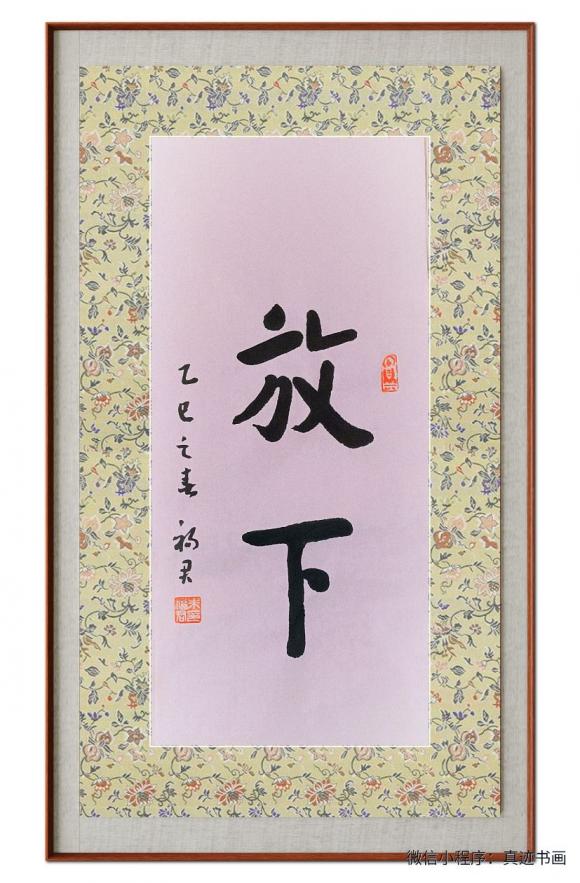 放下
乙巳之春 福君
微信小程序：真迹书画